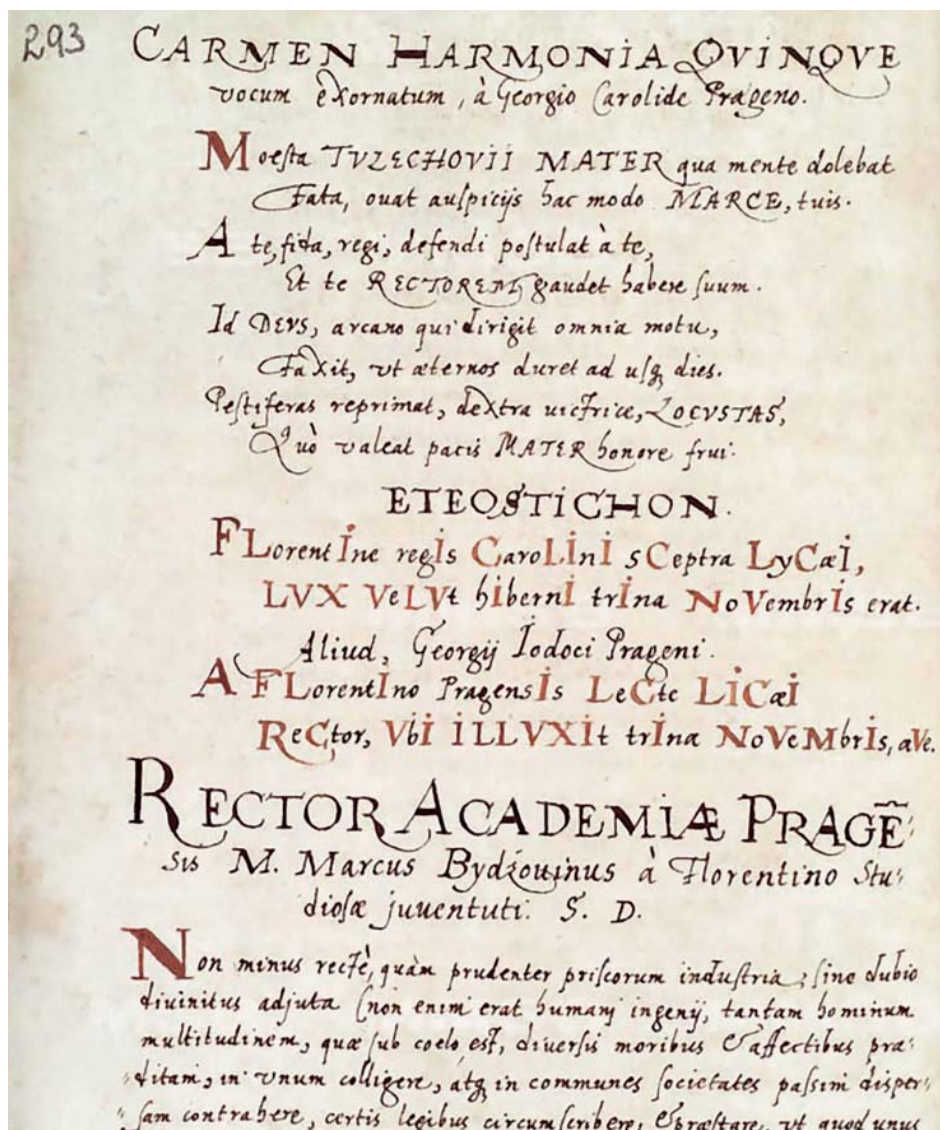 293
CARMEN HARMONIA QVINQVE
vocum èxornatum, à Georgio Carolide Prageno.
Moesta TVZECHOVII MATER qua mente dolebat
Fata, ouat auspicijs hac modo MARCE, tuis.
A te, fida, regi, defendi postulat à te,
Et te RECTOREM gaudet habere suum.
Id DEVS, arcano qui dirigit omnia motu,
Faxit, vt æternos duret ad usq dies.
Pestiferas reprimat, dextra uictrice, LOCVSTAS,
Quò valeat pacis MATER honore frui.
ETEOSTICHON.
FLorentIne regIs CaroLInI sCeptra LyCæI,
LVX VeLVt hIbernI trIna NoVembrIs erat.
Aliud, Georgij Iodoci Prageni.
A FLorentIno PragensIs LeCte LICæI
ReCtor, VbI ILLVXIt trIna NoVeMbrIs, aVe.
RECTOR ACADEMIÆ PRAGE̅
sis M. Marcus Bydżouinus à Florentino Stu
diosæ juuentuti. S. D.
Non minus rectè, quàm prudenter priscorum industria, sine dubio
diuinitus adjuta (non enim erat humanj ingenij, tantam hominum
multitudinem, quæ sub coelo est, diuersis moribus & affectibus præ
ditam, in vnum colligere, atq in communes societates passim disper
sam contrahere, certis legibus circumscribere, & præstare, vt quod unus